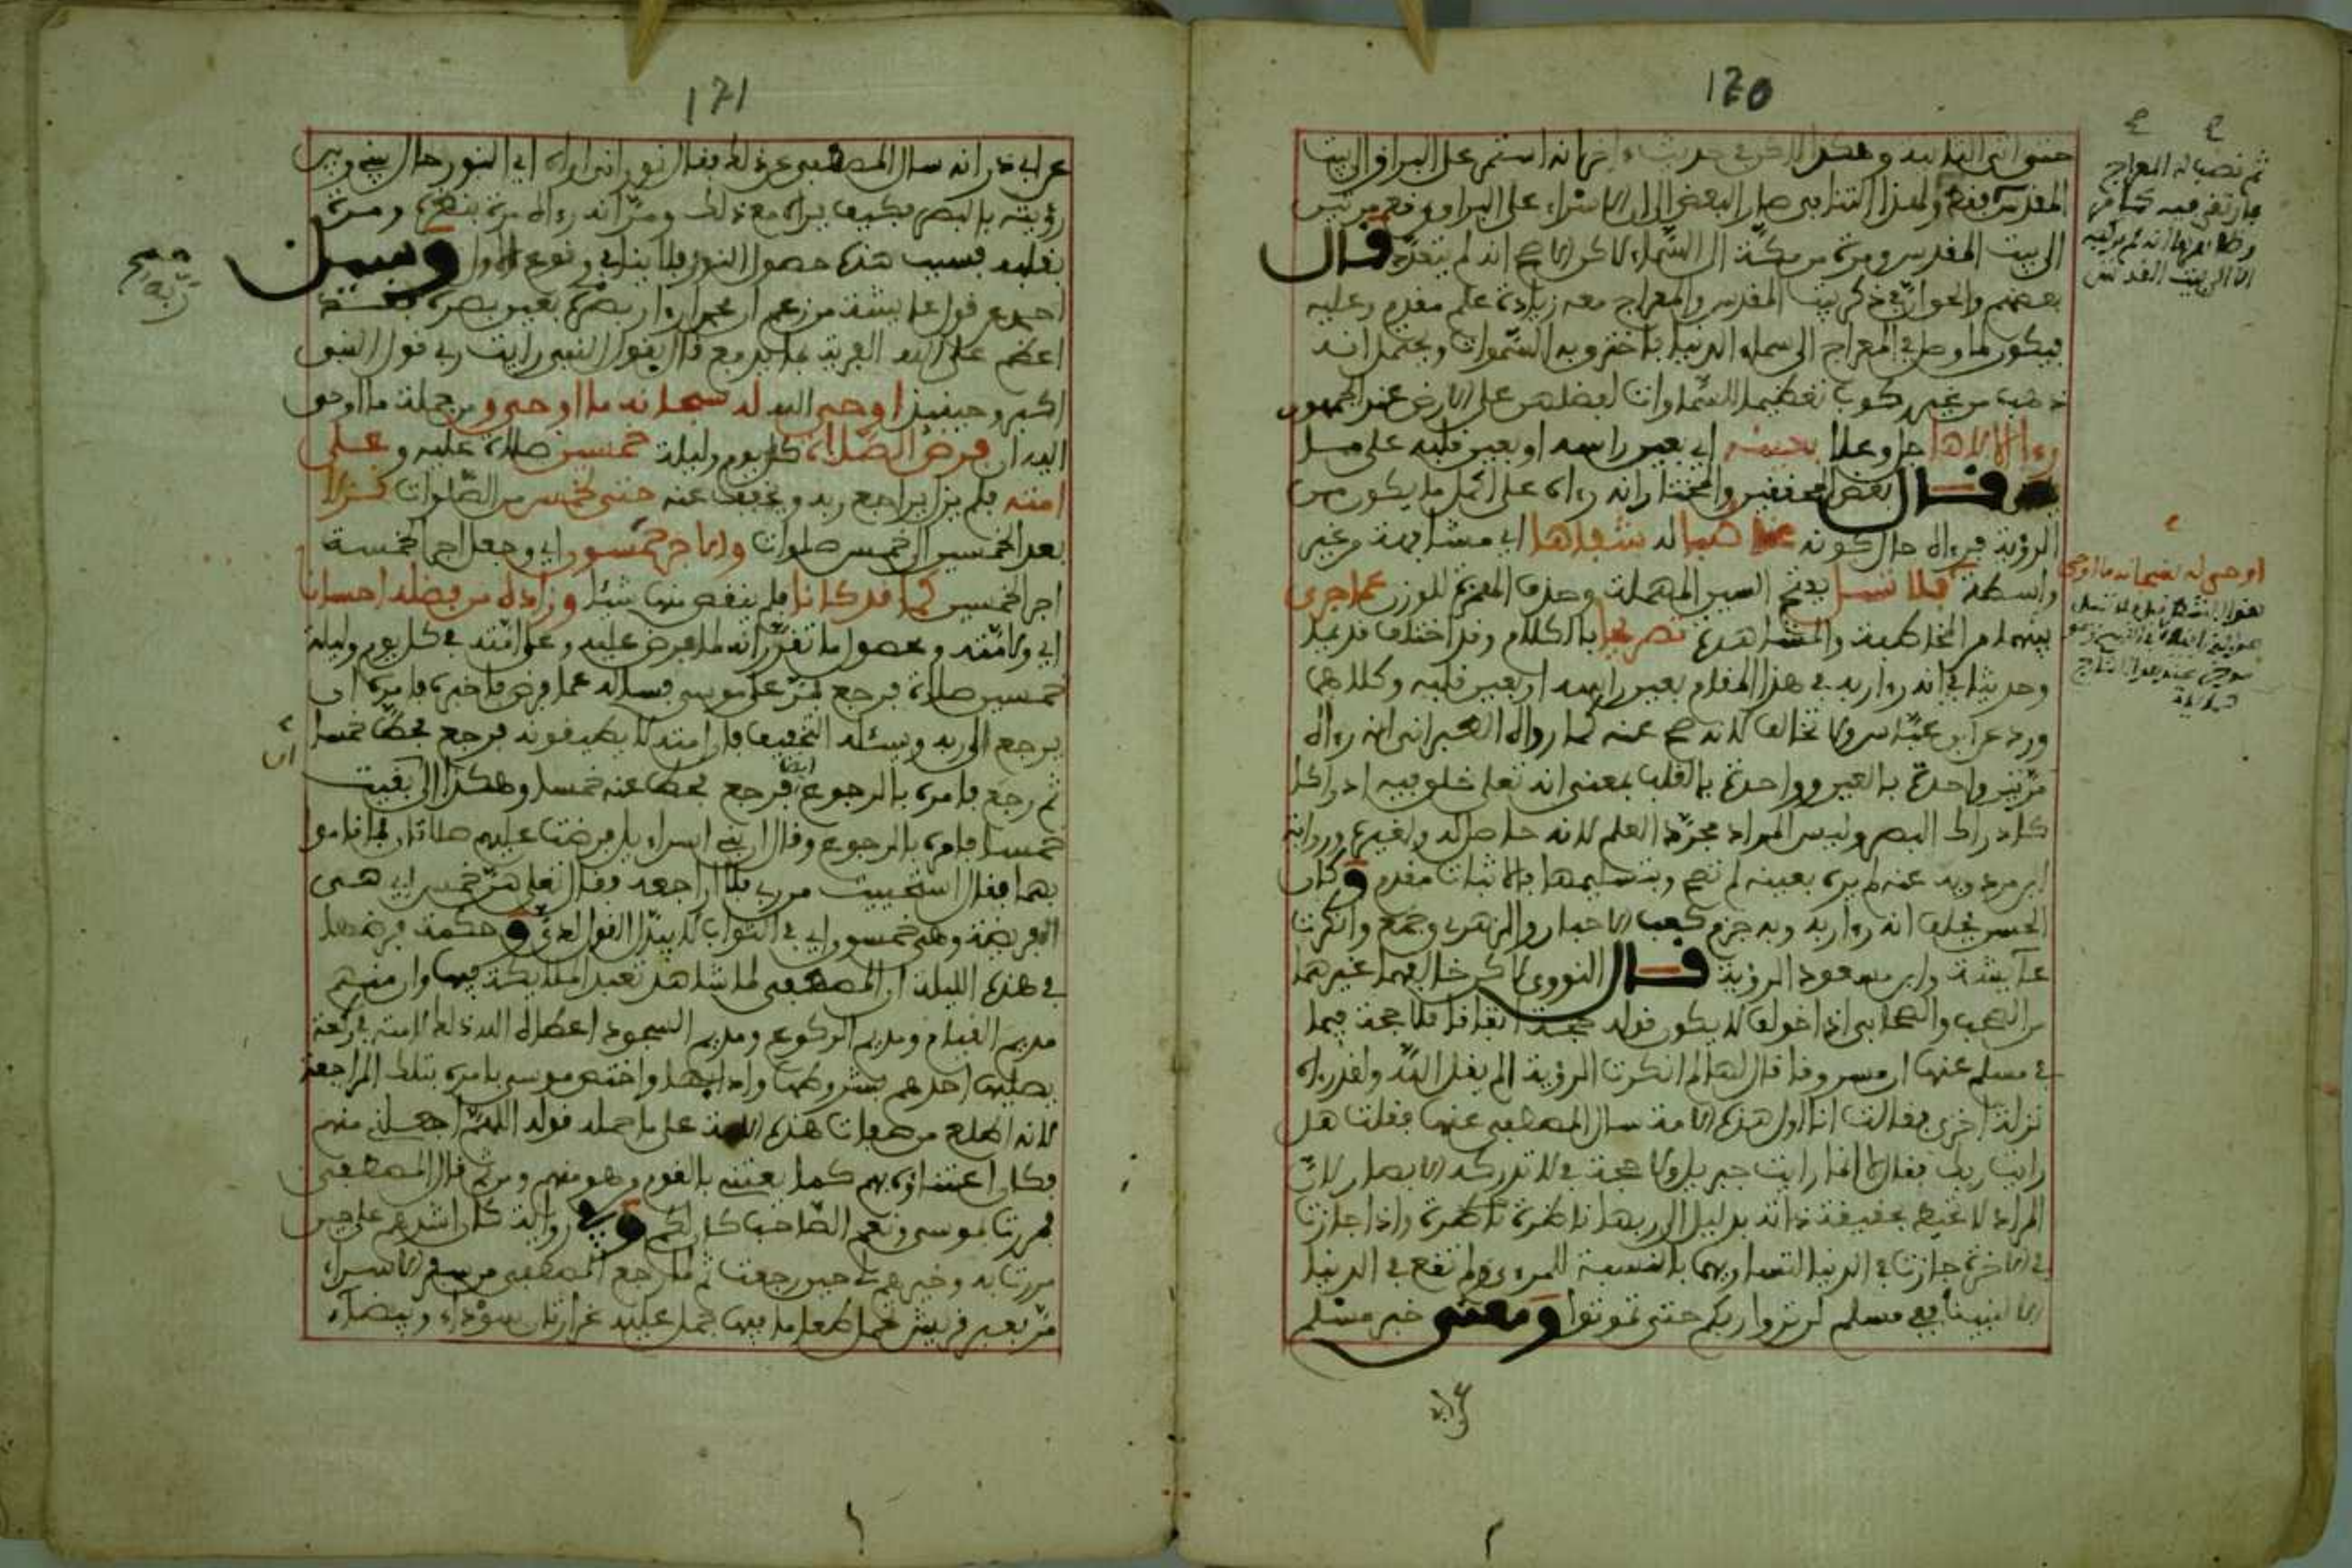 120
حتى اتى اليه وهكذا الاخر في حديث انه استمر على البراق الى بيت
المقدس فقط ولهذا التنافي صار البعض الى ان الاسراء على البراق وقع مرتين
الى بيت المقدس ومرة من مكة الى السماء لاكن الاصح انه لم يتعدد قال
بعضهم والجواب في ذكر بيت المقدس والمعراج معه زيادة علم مقدم وعليه
فيكون ما وصل في المعراج الى سماء الدنيا باخترق به السموات ويحتمل انه
ذهب من غير ركوب تعظيما للسماوات لفضلهن على الارض عند الجمهور
رءا الالاها جل وعلا بعينه اي بعين راسه او بعين قلبه على
قال بعض المحققين والمختار انه رءاه على اكمل ما يكون من
الرؤية فرءاه حال كونه مخاطبا له شفاها اي مشافهة من غير
واسطة فلا تنسا بفتح السين المهملة وحذف الهمزة للوزن عما جرى
بينهما من المخاطبة والمشاهدة تصريحا بالكلام وقد اختلف قديما
وحديثا في انه رءا ربه في هذا المقام بعين راسه او بعين قلبه وكلاهما
ورد عن ابن عباس ولا تخالف لانه صح عنه كما رواه الطبراني انه رءاه
مرتين واحدة بالعين وواحدة بالقلب بمعنى انه تعلى خلق فيه ادراكا
كادراك البصر وليس المراد مجرد العلم لانه حاصل له ولغيره ورواية
ابن مردويه عنه لم يره بعينه لم تصح وبتسليمها فالاثبات مقدم وكان
الحسن يحلف انه رءا ربه وبه جزم كعب الاحبار والزهري وجمع وانكرت
عائشة وابن مسعود الرؤية قال النووي لاكن خالفهما غيرهما
من الصحب والصحابي اذا خولف لا يكون قوله حجة اتفاقا فلا حجة فيما
في مسلم عنها ان مسروقا قال لها لما انكرت الرؤية الم يقل الله ولقد رءاه
نزلة اخرى فقالت انا اول هذه الامة سال المصطفى عنها فقلت هل
رايت ربك فقال انما رايت جبريل ولا حجة في لا تدركه الابصار لان
المراد لا تحيط بحقيقة ذاته بدليل الى ربها ناظرة ناظرة واذا جازت
في الاخرة جازت في الدنيا لتساويهما بالنسبة للمرءى ولم تقع في الدنيا
الا لنبينا ففي مسلم لن تروا ربكم حتى تموتوا ومعنى خبر مسلم
ثم نصب له المعراج
فارتقى فيه كما في
وظاهرها انه لم يركبه
الا الى بيت المقدس
اوحى له سبحانه ما اوحى
121
عن ابي ذر انه سال المصطفى عن ذلك فقال نور انى اراه اي النور حال بيني وبين
رؤيته بالبصر فكيف يراه مع ذلك ومر انه رءاه مرة ببصره ومرة
بقلبه فسبب هذه حصول النور فلا ينافي وقوع الاول وسيل
احمد عن قول عائشة من زعم ان محمدا رءا ربه بعين بصره فقد
اعظم على الله الفرية بما يدفع قال بقول النبي رايت ربي قول النبي
اكبر وحينئذ اوحى اليه له سبحانه ما اوحى ومن جملة ما اوحى
اليه ان فرض الصلاة كل يوم وليلة خمسين صلاة عليه وعلى
امته فلم يزل يراجع ربه ويخفف عنه حتى لخمس من الصلوات نزلا
بعد الخمسين الى خمس صلوات والاجر خمسون اي وجعل اجر الخمسة
اجر الخمسين كما قد كانا فلم ينقص منها شيئا وزاده من فضله احسانا
اي ولامته ومحصول ما تقرر انه لما فرض عليه وعلى امته في كل يوم وليلة
خمسين صلاة فرجع فمر على موسى فساله عما فرض فاخبره فامره ان
يرجع الى ربه ويسئله التخفيف فان امته لا يطيقونه فرجع فحط خمسا
ثم رجع فامره بالرجوع ايضا فرجع فحط عنه خمسا وهكذا الى بقيت
خمسا فامره بالرجوع وقال ان بني اسراءيل فرضت عليهم صلاتان فما قاموا
بهما فقال استحييت من ربي فلا اراجعه فقال تعلى هن خمس اي هي
الفريضة وهي خمسون اي في الثواب لا يبدل القول لدي وحكمة فرضها
في هذه الليلة ان المصطفى لما شاهد تعبد الملائكة فيها وان منهم
مديم القيام ومديم الركوع ومديم السجود اعطاه الله ذلك لامته في ركعة
يصليها احدهم بشروطها وادابها واختص موسى بامره بتلك المراجعة
لانه اطلع من صفات هذه الامة على ما حمله قوله اللهم اجعلني منهم
فكان اعتناؤه بهم كما يعتني بالقوم من هو منهم ومن ثم قال المصطفى
فمررت بموسى ونعم الصاحب كان لكم وفي رواية كان اشدهم علي حين
مررت به وخيرهم لي حين رجعت ثم لما رجع المصطفى من سفر الاسراء
مر بعير قريش تحمل طعاما فيها جمل عليه غرارتان سوداء وبيضاء
ان